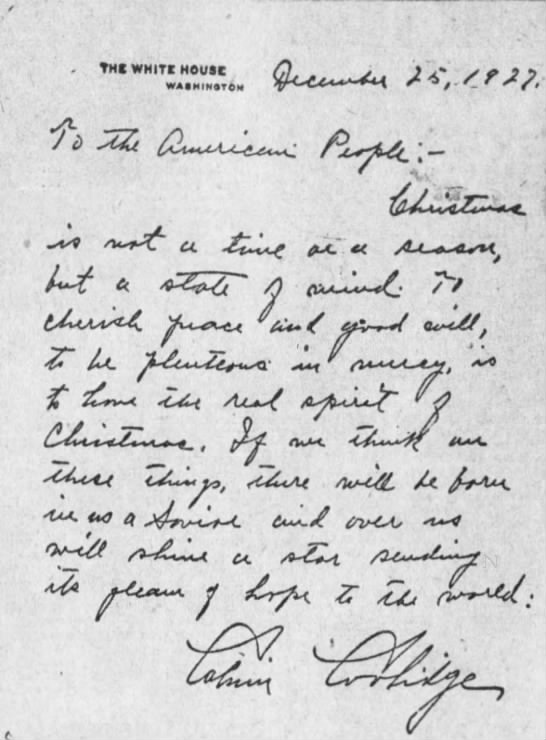 THE WHITE HOUSE
WASHINGTON
December 25, 1927.
To the American People:-
Christmas
is not a time or a season,
but a state of mind. To
cherish peace and good will,
to be plenteous in mercy, is
to have the real spirit of
Christmas. If we think on
these things, there will be born
in us a Savior and over us
will shine a star sending
its gleam of hope to the world:
Calvin Coolidge